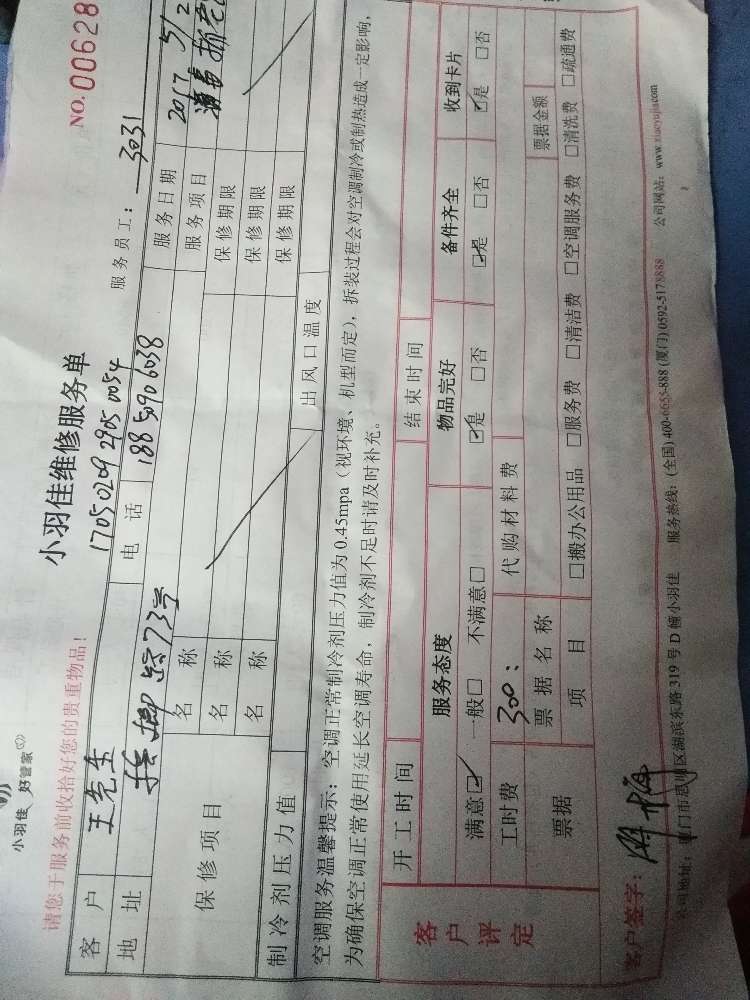 小羽佳 好管家
NO. 00628
小羽佳维修服务单
请您于服务前收拾好您的贵重物品!
1705020929050054
服务员工: 3031
客户
电话 18850906038
服务日期 2017 5/2
地址 路73号
服务项目
保修项目
名称 保修期限
名称 保修期限
名称 保修期限
制冷剂压力值 出风口温度
空调服务温馨提示: 空调正常制冷剂压力值为0.45mpa(视环境、机型而定), 拆装过程会对空调制冷或制热造成一定影响,
为确保空调正常使用延长空调寿命, 制冷剂不足时请及时补充。
客户评定
开工时间 结束时间
服务态度 物品完好 备件齐全 收到卡片
满意☑ 一般□ 不满意□ ☑是 □否 ☑是 □否 ☑是 □否
工时费 300: 代购材料费
票据 票据名称 票据金额
项目 □搬办公用品 □服务费 □清洁费 □空调服务费 □清洗费 □疏通费
客户签字:
公司地址: 厦门市思明区湖滨东路319号D幢小羽佳 服务热线: (全国) 400-6655-888 (厦门) 0592-5178888 公司网站: www.xiaoyujia.com